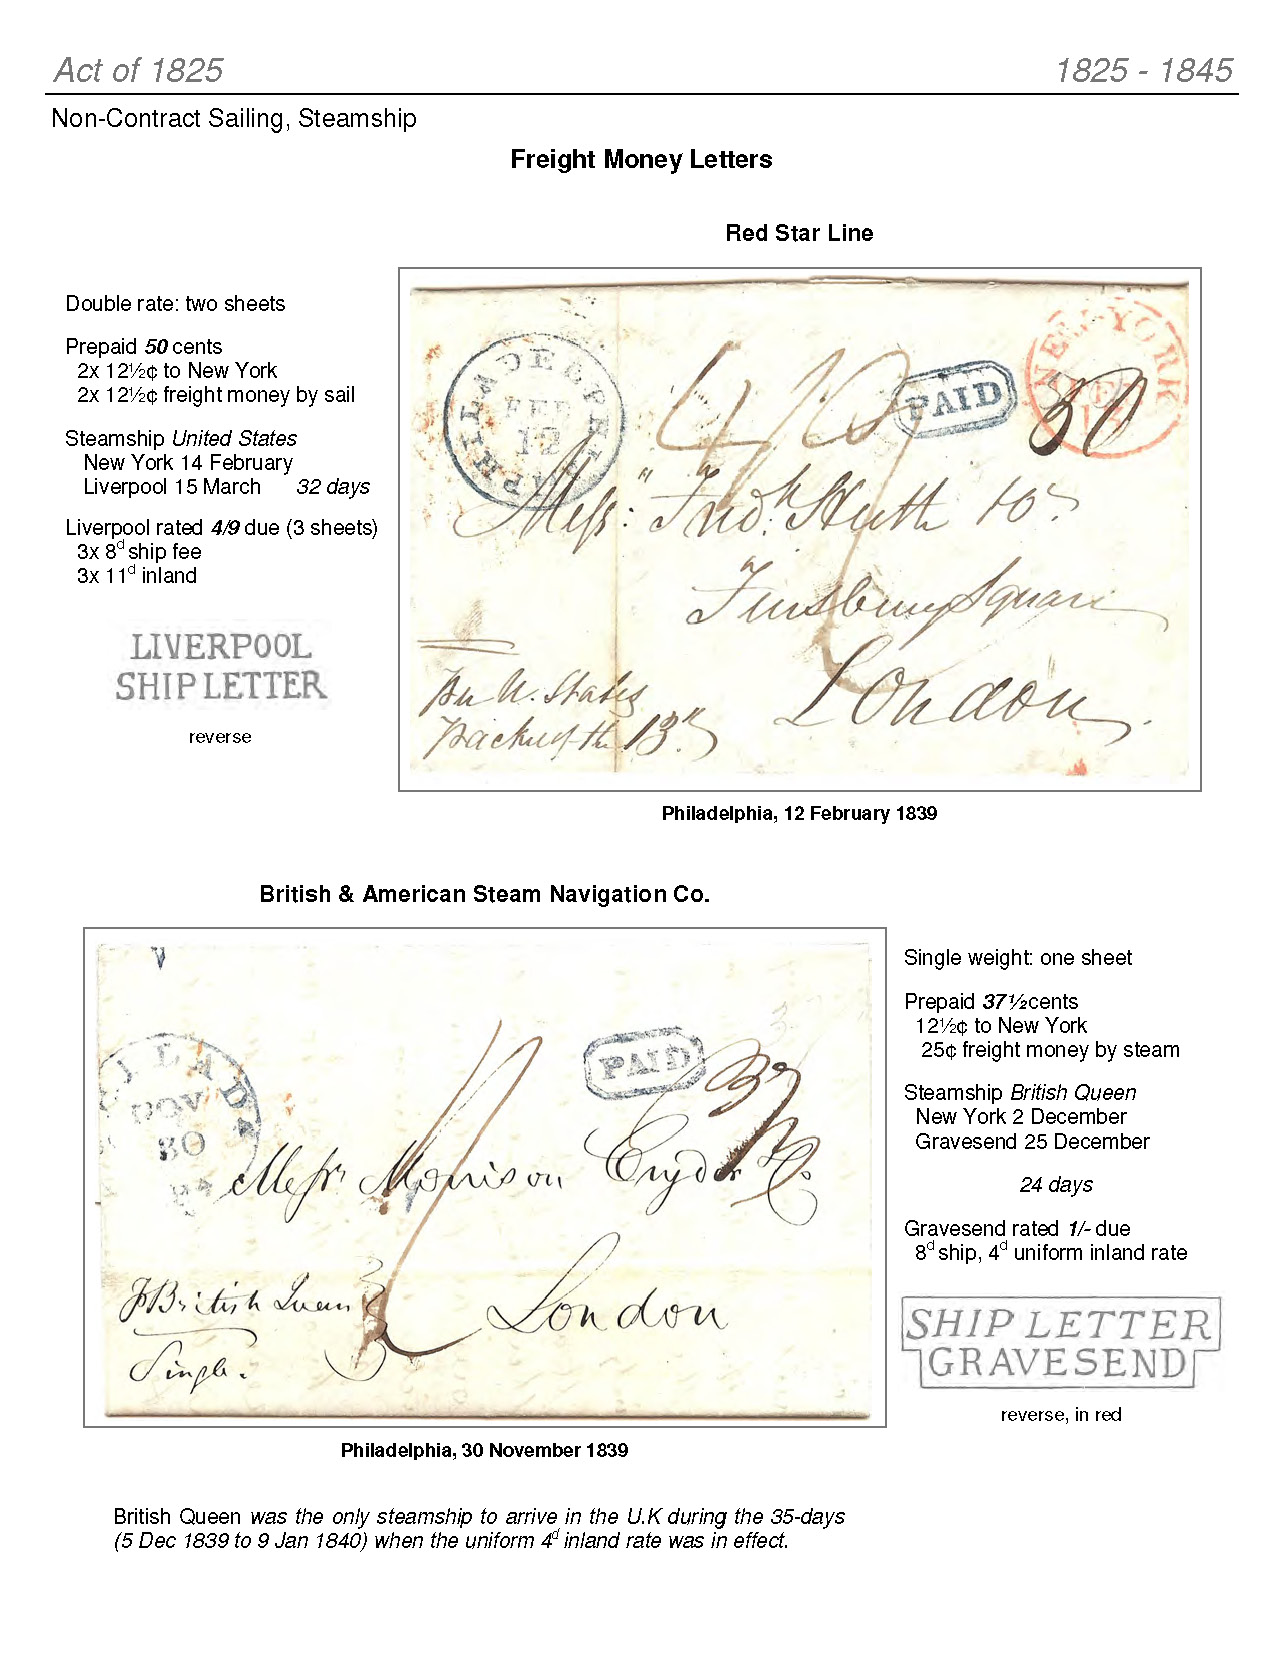 Act of 1825
1825 - 1845
Non-Contract Sailing, Steamship
Freight Money Letters
Red Star Line
Double rate: two sheets
Prepaid 50 cents
2x 12½¢ to New York
2x 12½¢ freight money by sail
Steamship United States
New York 14 February
Liverpool 15 March 32 days
Liverpool rated 4/9 due (3 sheets)
3x 8d ship fee
3x 11d inland
LIVERPOOL
SHIP LETTER
reverse
PHILADELPHIA
FEB
12
PAID
NEW YORK
FEB
Messrs Fredk Huth
Finsbury Square
London
U. States
Packet of the 13th
Philadelphia, 12 February 1839
British & American Steam Navigation Co.
NOV
30
PAID
Messrs Morrison Cryder & Co
London
British Queen
Single.
Philadelphia, 30 November 1839
Single weight: one sheet
Prepaid 37½ cents
12½¢ to New York
25¢ freight money by steam
Steamship British Queen
New York 2 December
Gravesend 25 December
24 days
Gravesend rated 1/- due
8d ship, 4d uniform inland rate
SHIP LETTER
GRAVESEND
reverse, in red
British Queen was the only steamship to arrive in the U.K during the 35-days
(5 Dec 1839 to 9 Jan 1840) when the uniform 4d inland rate was in effect.